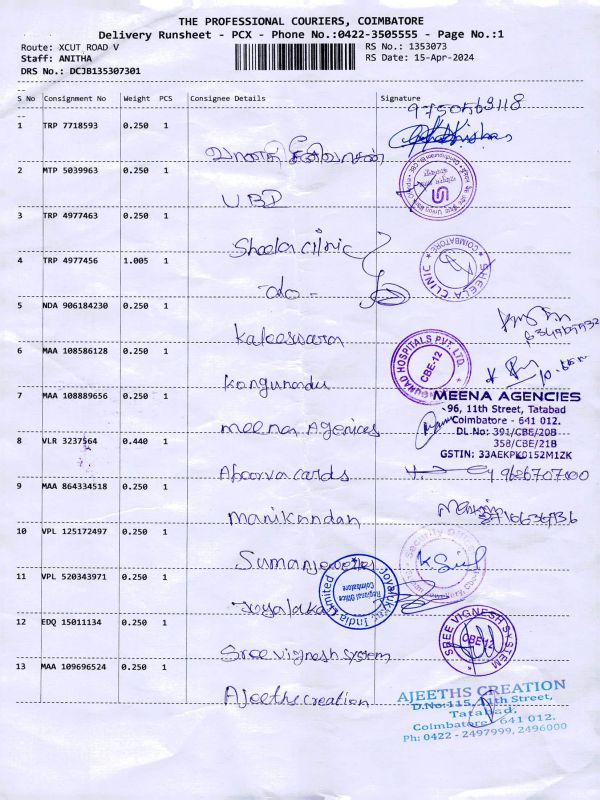 THE PROFESSIONAL COURIERS, COIMBATORE
Delivery Runsheet - PCX - Phone No.:0422-3505555 - Page No.:1
Route: XCUT ROAD V
RS No.: 1353073
Staff: ANITHA
RS Date: 15-Apr-2024
DRS No.: DCJB135307301
S No Consignment No Weight PCS Consignee Details Signature
9750563118
1 TRP 7718593 0.250 1
2 MTP 5039963 0.250 1 UBI
3 TRP 4977463 0.250 1 Sheela clinic
COIMBATORE
SHEELA CLINIC
4 TRP 4977456 1.005 1 -do-
5 NDA 906184230 0.250 1 Kaleeswara
HOSPITALS PVT. LTD.
CBE-12
6 MAA 108586128 0.250 1 Kongunadu
7 MAA 108889656 0.250 1 meena Agencies
MEENA AGENCIES
96, 11th Street, Tatabad
Coimbatore - 641 012.
DL No: 391/CBE/20B
358/CBE/21B
GSTIN: 33AEKPK0152M1ZK
8 VLR 3237564 0.440 1 Apoorva cards
9 MAA 864334518 0.250 1 Manikandan
10 VPL 125172497 0.250 1 Suman jewellers
11 VPL 520343971 0.250 1
India Limited
Regional Office
Coimbatore
12 EDQ 15011134 0.250 1 Sree vignesh system
SREE VIGNESH SYSTEM
CBE-12
13 MAA 109696524 0.250 1 Ajeeths creation
AJEETHS CREATION
D.No:115, 11th Street,
Tatabad,
Coimbatore - 641 012.
Ph: 0422 - 2497999, 2496000